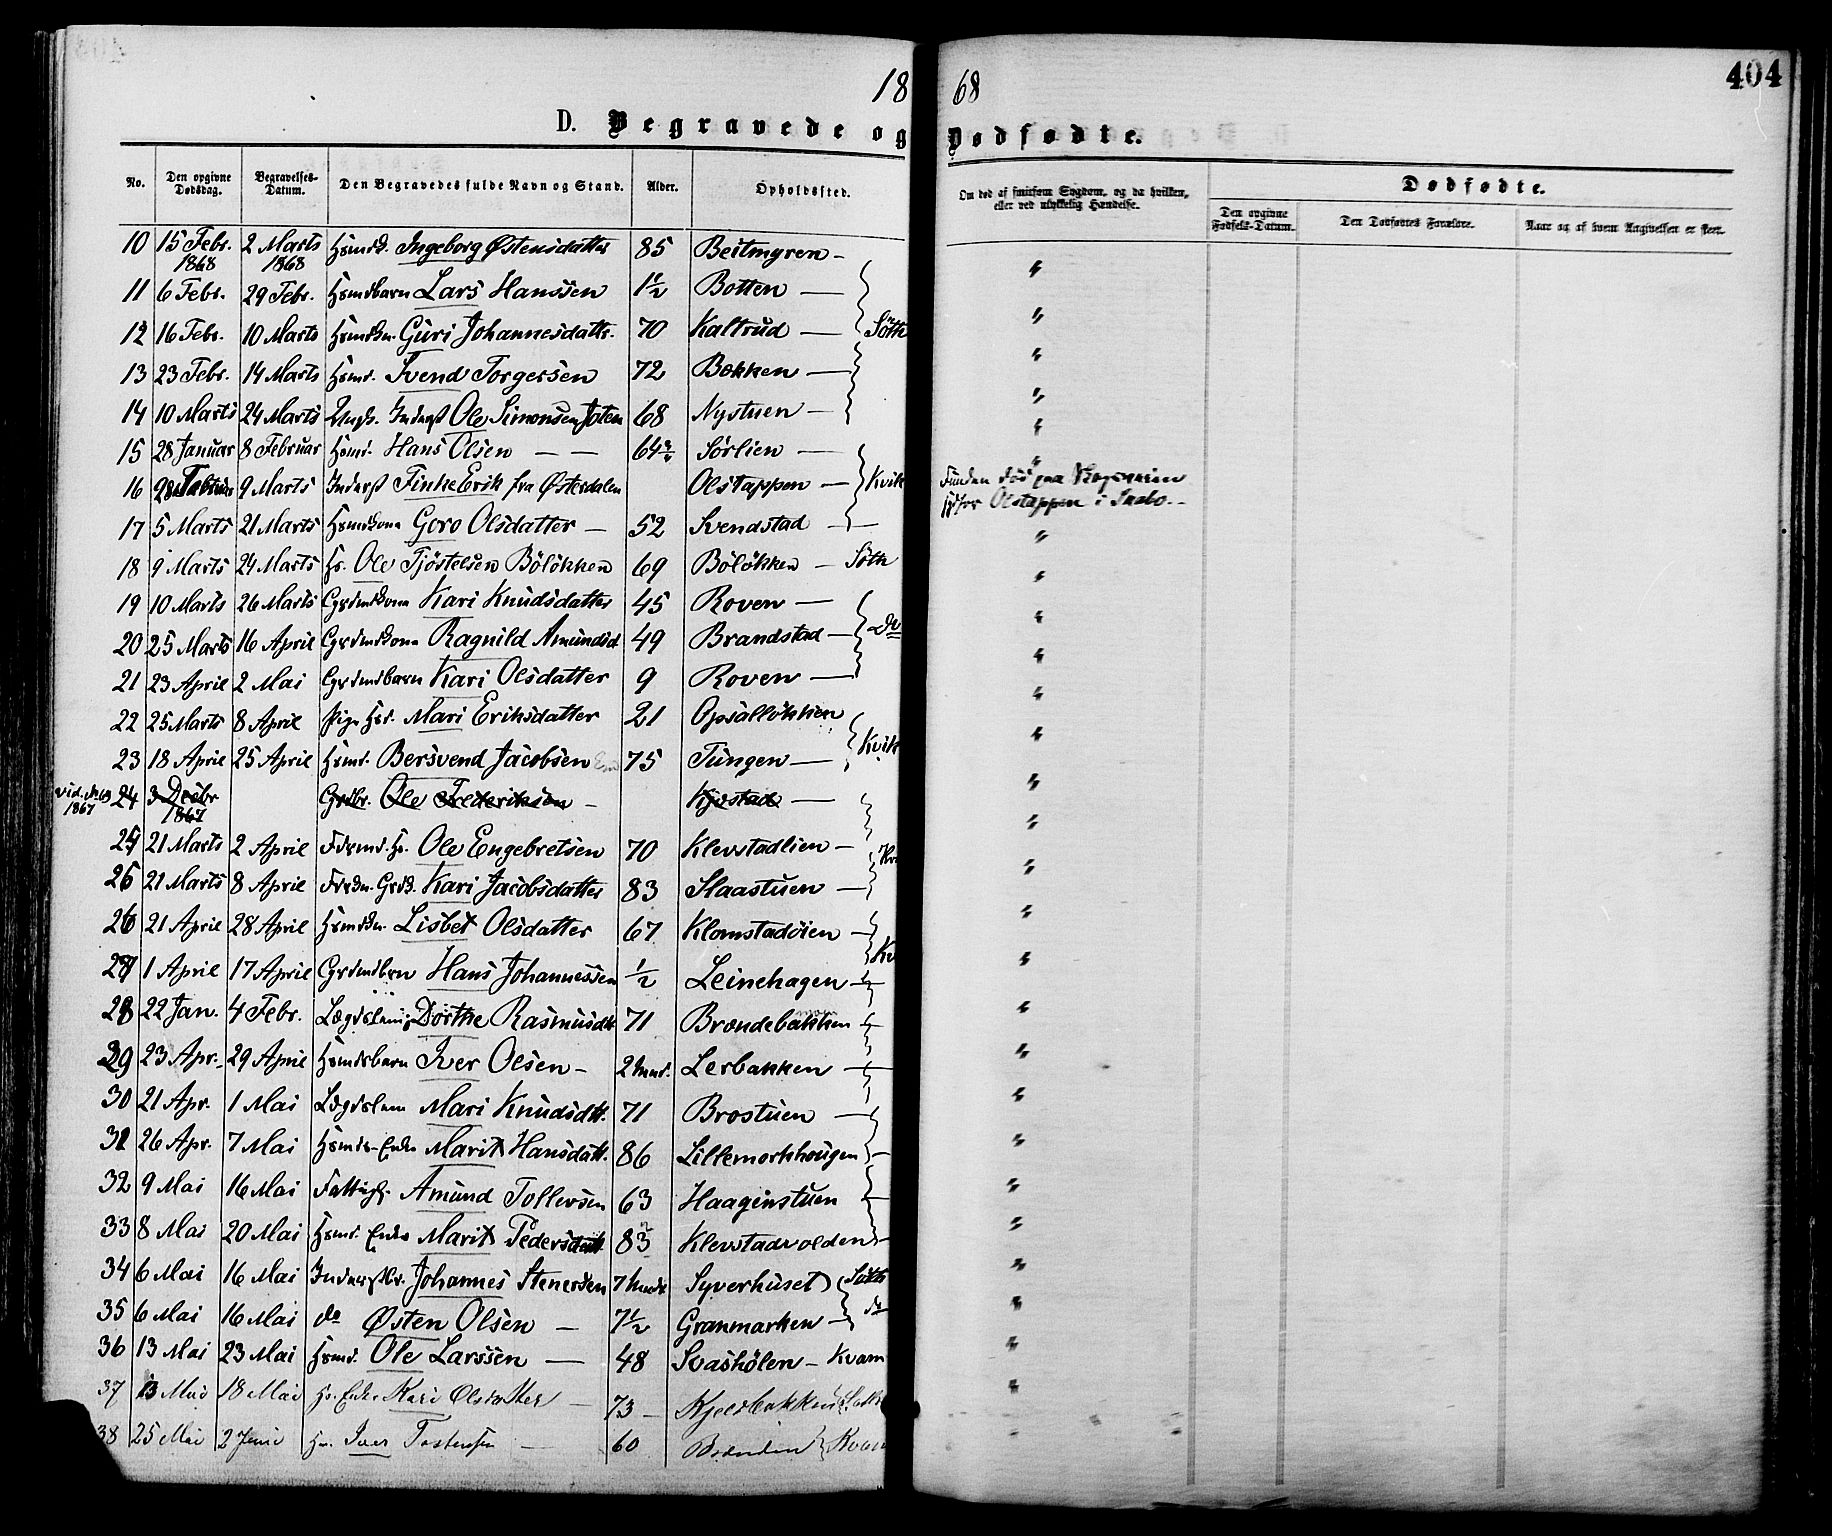 18 68
404
D. Begravede og Dødfødte.
No. Den opgivne Dødsdag. Begravelses-Datum. Den Begravedes fulde Navn og Stand. Alder. Opholdssted. Om død af smitsom Sygdom, og da hvilken, eller ved ulykkelig Hændelse. Dødfødte.
Den opgivne Fødsels-Datum. Den Dødfødtes Forældre. Naar og af hvem Angivelsen er skeet.
10 15 Febr. 1868 2 Marts 1868 Ingeborg Østensdatter 85 Beitmyren - "
11 6 Febr. 29 Febr. Hsmdbarn Lars Hanssen 1½ Botten — "
12 16 Febr. 10 Marts Hsmdkn. Guri Johannesdattr. 70 Kaltrud — Söth "
13 23 Febr. 14 Marts Hsmd. Svend Torgersen 72 Bækken — "
14 10 Marts 24 Marts Inderst Ole Simonsen 68 Nystuen — "
15 28 Januar 8 Februar Hsmd. Hans Olsen — — 64 Sörlien — "
16 9 Marts Inderst Finke Erik fra Østerdalen Olstappen — Kvik Funden död paa
Olstappen i
17 5 Marts 21 Marts Hsmdkona Goro Olsdatter — 52 Svendstad — "
18 9 Marts 24 Marts Hs. Ole Tjöstelsen Bölökken 69 Bölökken — Söth "
19 10 Marts 26 Marts Grdmdkona Kari Knudsdatter 45 Roven — "
20 25 Marts 16 April Grdmdkona Ragnild Amundsd 49 Brandstad — do "
21 23 April 2 Mai Grdmdbarn Kari Olsdatter 9 Roven — "
22 25 Marts 8 April Pige Mari Eriksdatter 21 Opsallökken "
23 18 April 25 April Hsmd. Bersvend Jacobsen 75 Tungen — Kvik "
vid. No 69 1867 24 3 Decbr 1867 Grdbr. Ole Frederiksen — Kjæstad — "
24 21 Marts 2 April Ole Engebretsen 70 Klevstadlien — "
25 21 Marts 8 April Kari Jacobsdatter 83 Slaastuen — "
26 21 April 28 April Hsmdkn. Lisbet Olsdatter 67 Klomstadöien — "
27 1 April 17 April Grdmdbrn Hans Johannessen ½ Leinehagen — "
28 22 Jan. 4 Febr. Lægdslem Dorthe Rasmusdtt. 71 Brændebakken "
29 23 Apr. 29 April Hsmdsbarn Iver Olsen — 2 Lerbakken — "
30 21 Apr. 1 Mai Lægdslem Mari Knudsdtt. 71 Brostuen — "
31 26 Apr. 7 Mai Hsmds-Enke Marit Hansdatt. 86 Lillemorkhougen "
32 9 Mai 16 Mai Amund Tollevsen 63 Haagenstuen "
33 8 Mai 20 Mai Hsmd. Enke Marit Pedersdatt. 83 Klevstadvolden "
34 6 Mai 16 Mai Johannes Stenersen 7 Syverhuset Söth "
35 6 Mai 16 Mai do Østen Olsen — 7½ Granmarken — do "
36 13 Mai 23 Mai Hsmd. Ole Larssen — 48 Svashölen — Kvam "
37 13 Mai 18 Mai Hs. Enke Kari Olsdatter — 73 — Kjeldbakken "
38 25 Mai 2 Juni Iver Tostensen — 60 Brænden Kvam